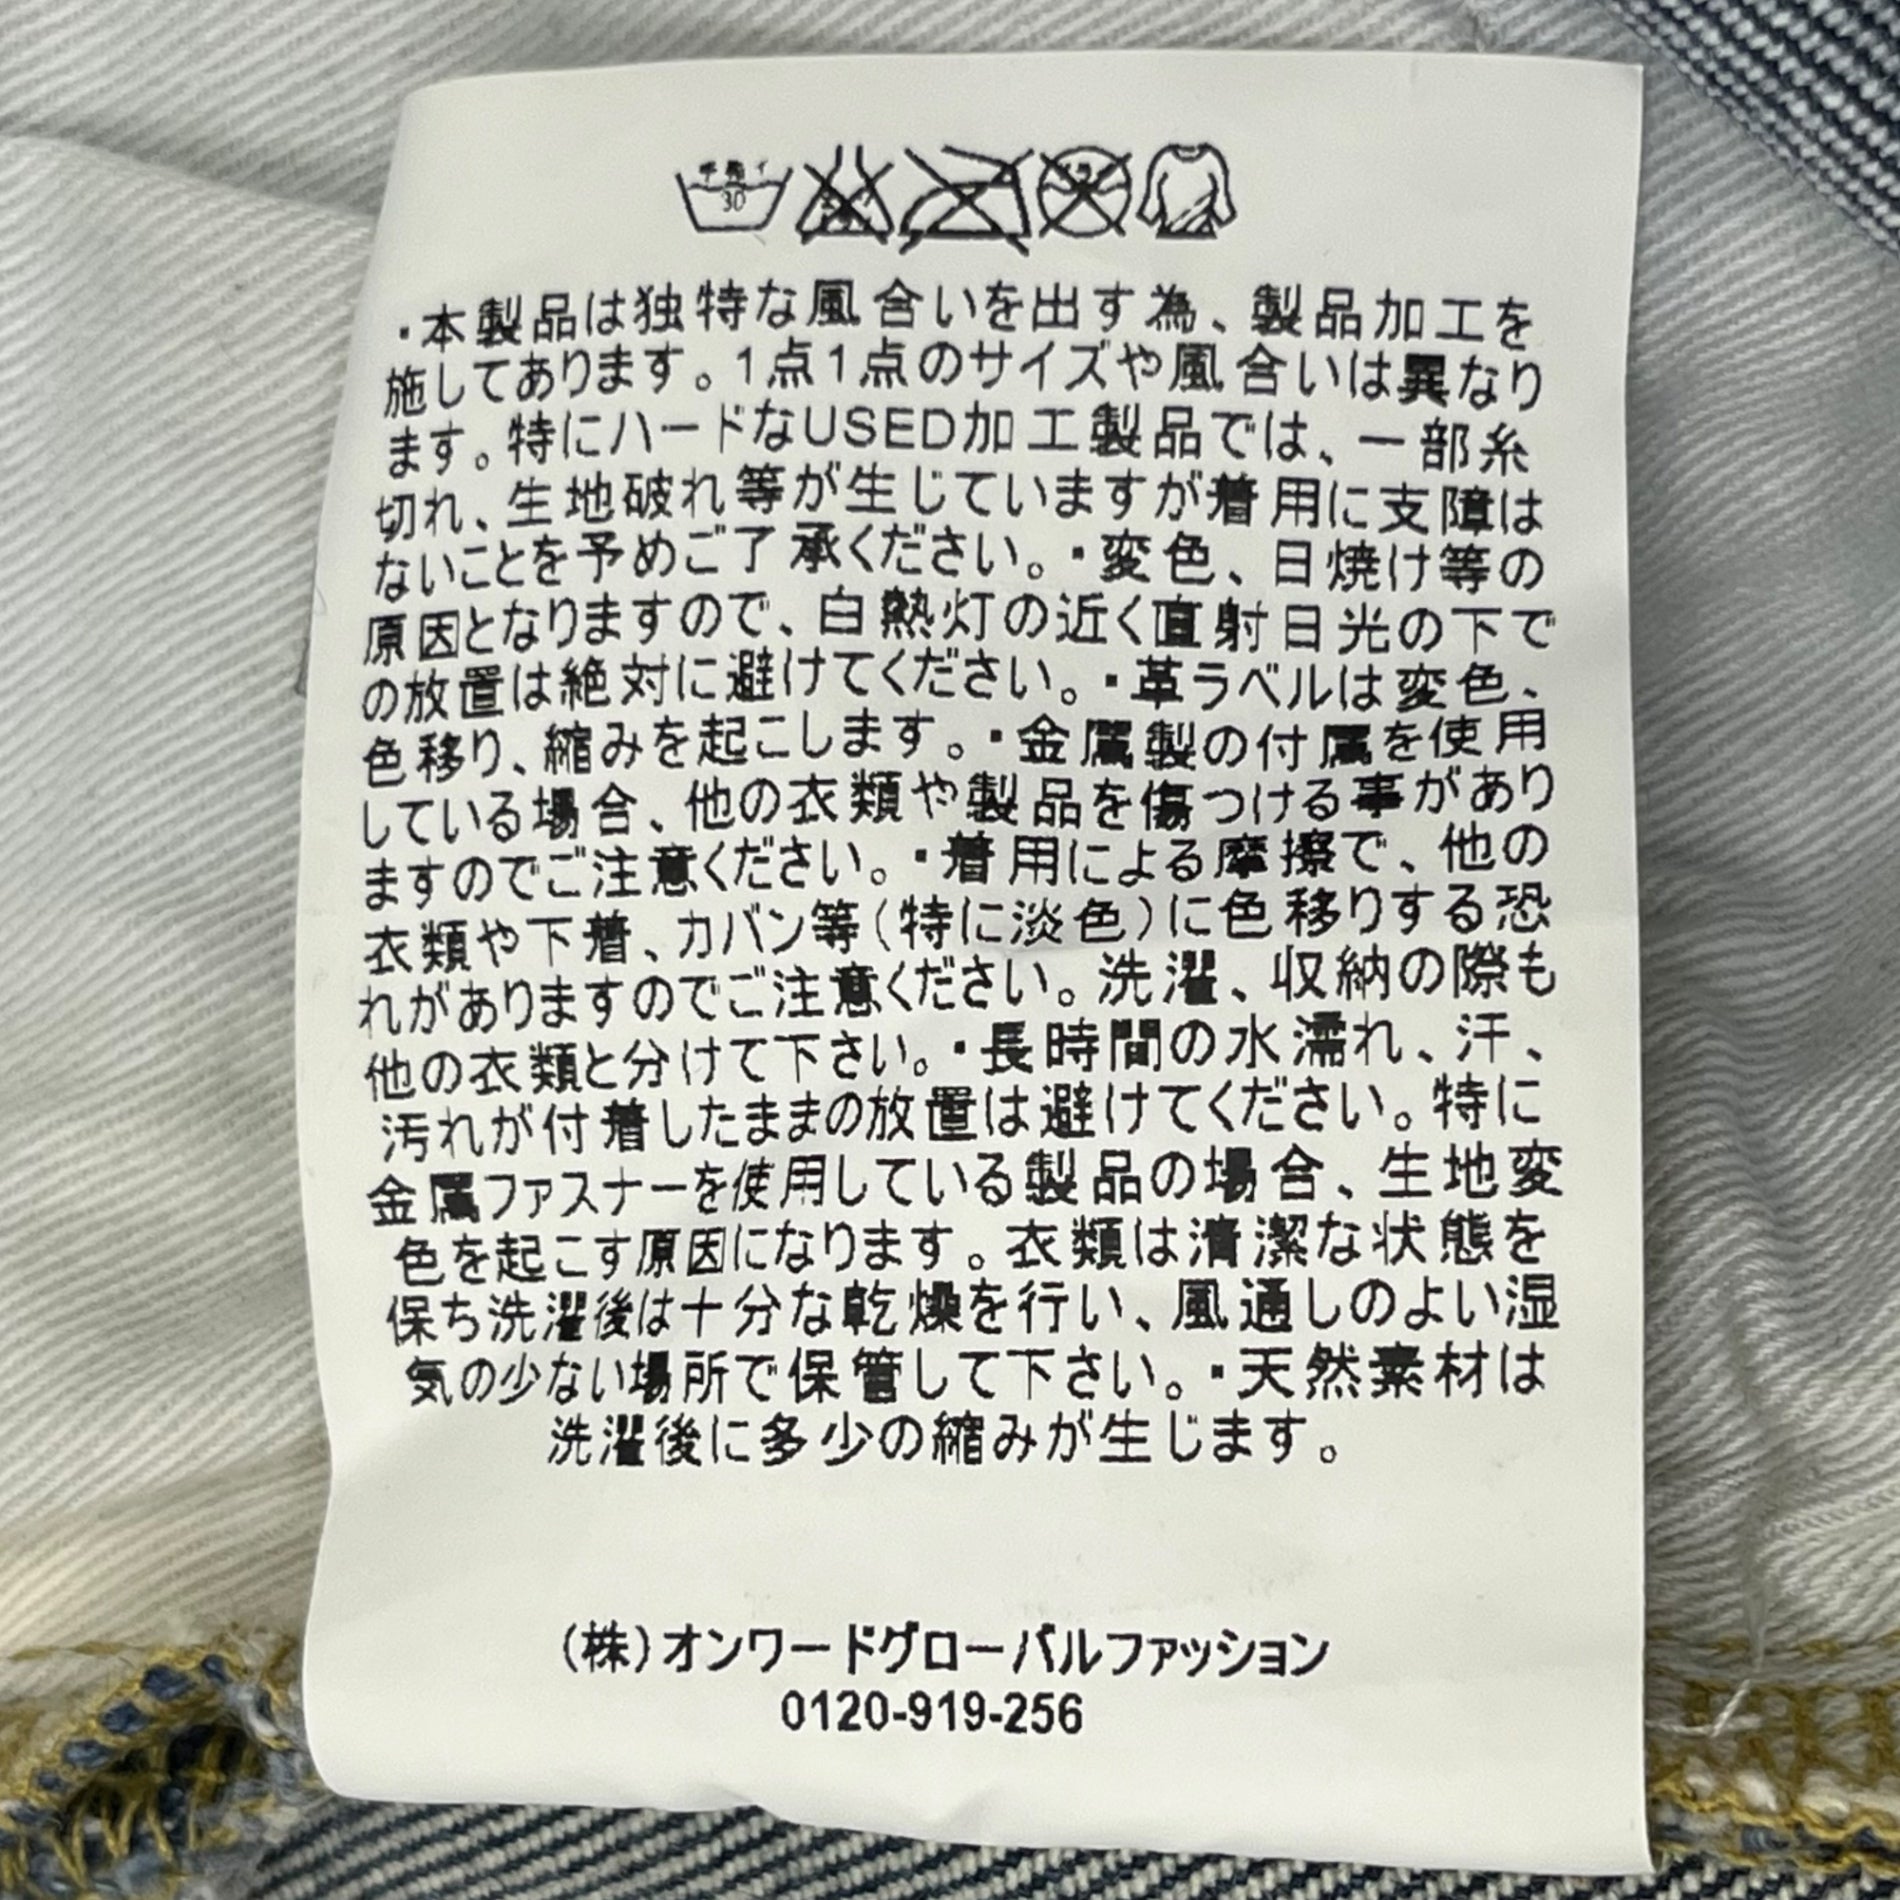 手洗イ
30
・本製品は独特な風合いを出す為、製品加工を
施してあります。1点1点のサイズや風合いは異なり
ます。特にハードなUSED加工製品では、一部糸
切れ、生地破れ等が生じていますが着用に支障は
ないことを予めご了承ください。・変色、日焼け等の
原因となりますので、白熱灯の近く直射日光の下で
の放置は絶対に避けてください。・革ラベルは変色、
色移り、縮みを起こします。・金属製の付属を使用
している場合、他の衣類や製品を傷つける事があり
ますのでご注意ください。・着用による摩擦で、他の
衣類や下着、カバン等(特に淡色)に色移りする恐
れがありますのでご注意ください。洗濯、収納の際も
他の衣類と分けて下さい。・長時間の水濡れ、汗、
汚れが付着したままの放置は避けてください。特に
金属ファスナーを使用している製品の場合、生地変
色を起こす原因になります。衣類は清潔な状態を
保ち洗濯後は十分な乾燥を行い、風通しのよい湿
気の少ない場所で保管して下さい。・天然素材は
洗濯後に多少の縮みが生じます。
(株)オンワードグローバルファッション
0120-919-256